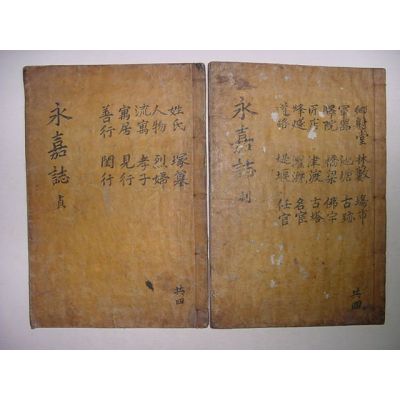 鄕射堂 林藪 場市
軍器 池塘 古跡
驛院 橋梁 佛宇
津渡 古塔
烽燧 名宦
道路 堤堰 任官
共四
永嘉誌 利
姓氏 塚墓
人物 烈婦
流寓 孝子
寓居 見行
善行 閨行
共四
永嘉誌 貞